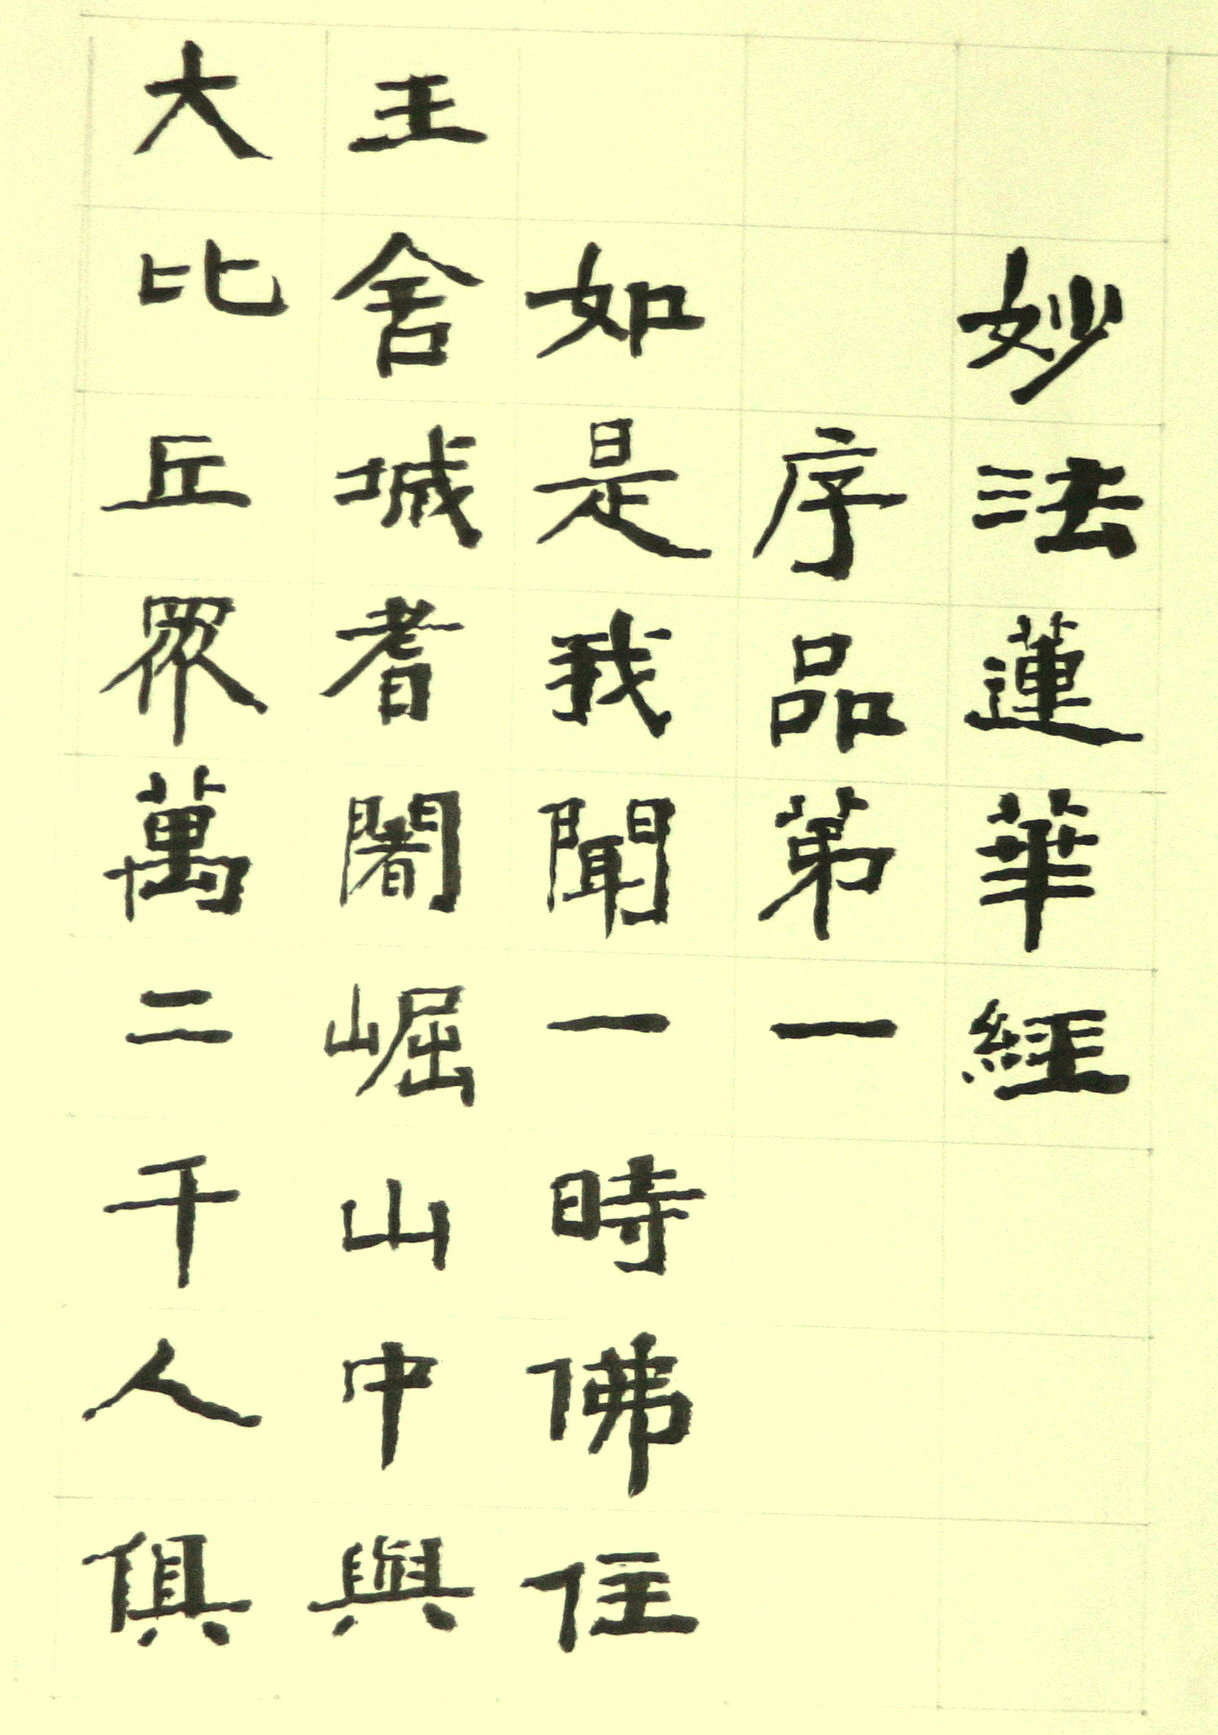 妙法蓮華經
序品第一
如是我聞一時佛住
王舍城耆闍崛山中與
大比丘眾萬二千人俱